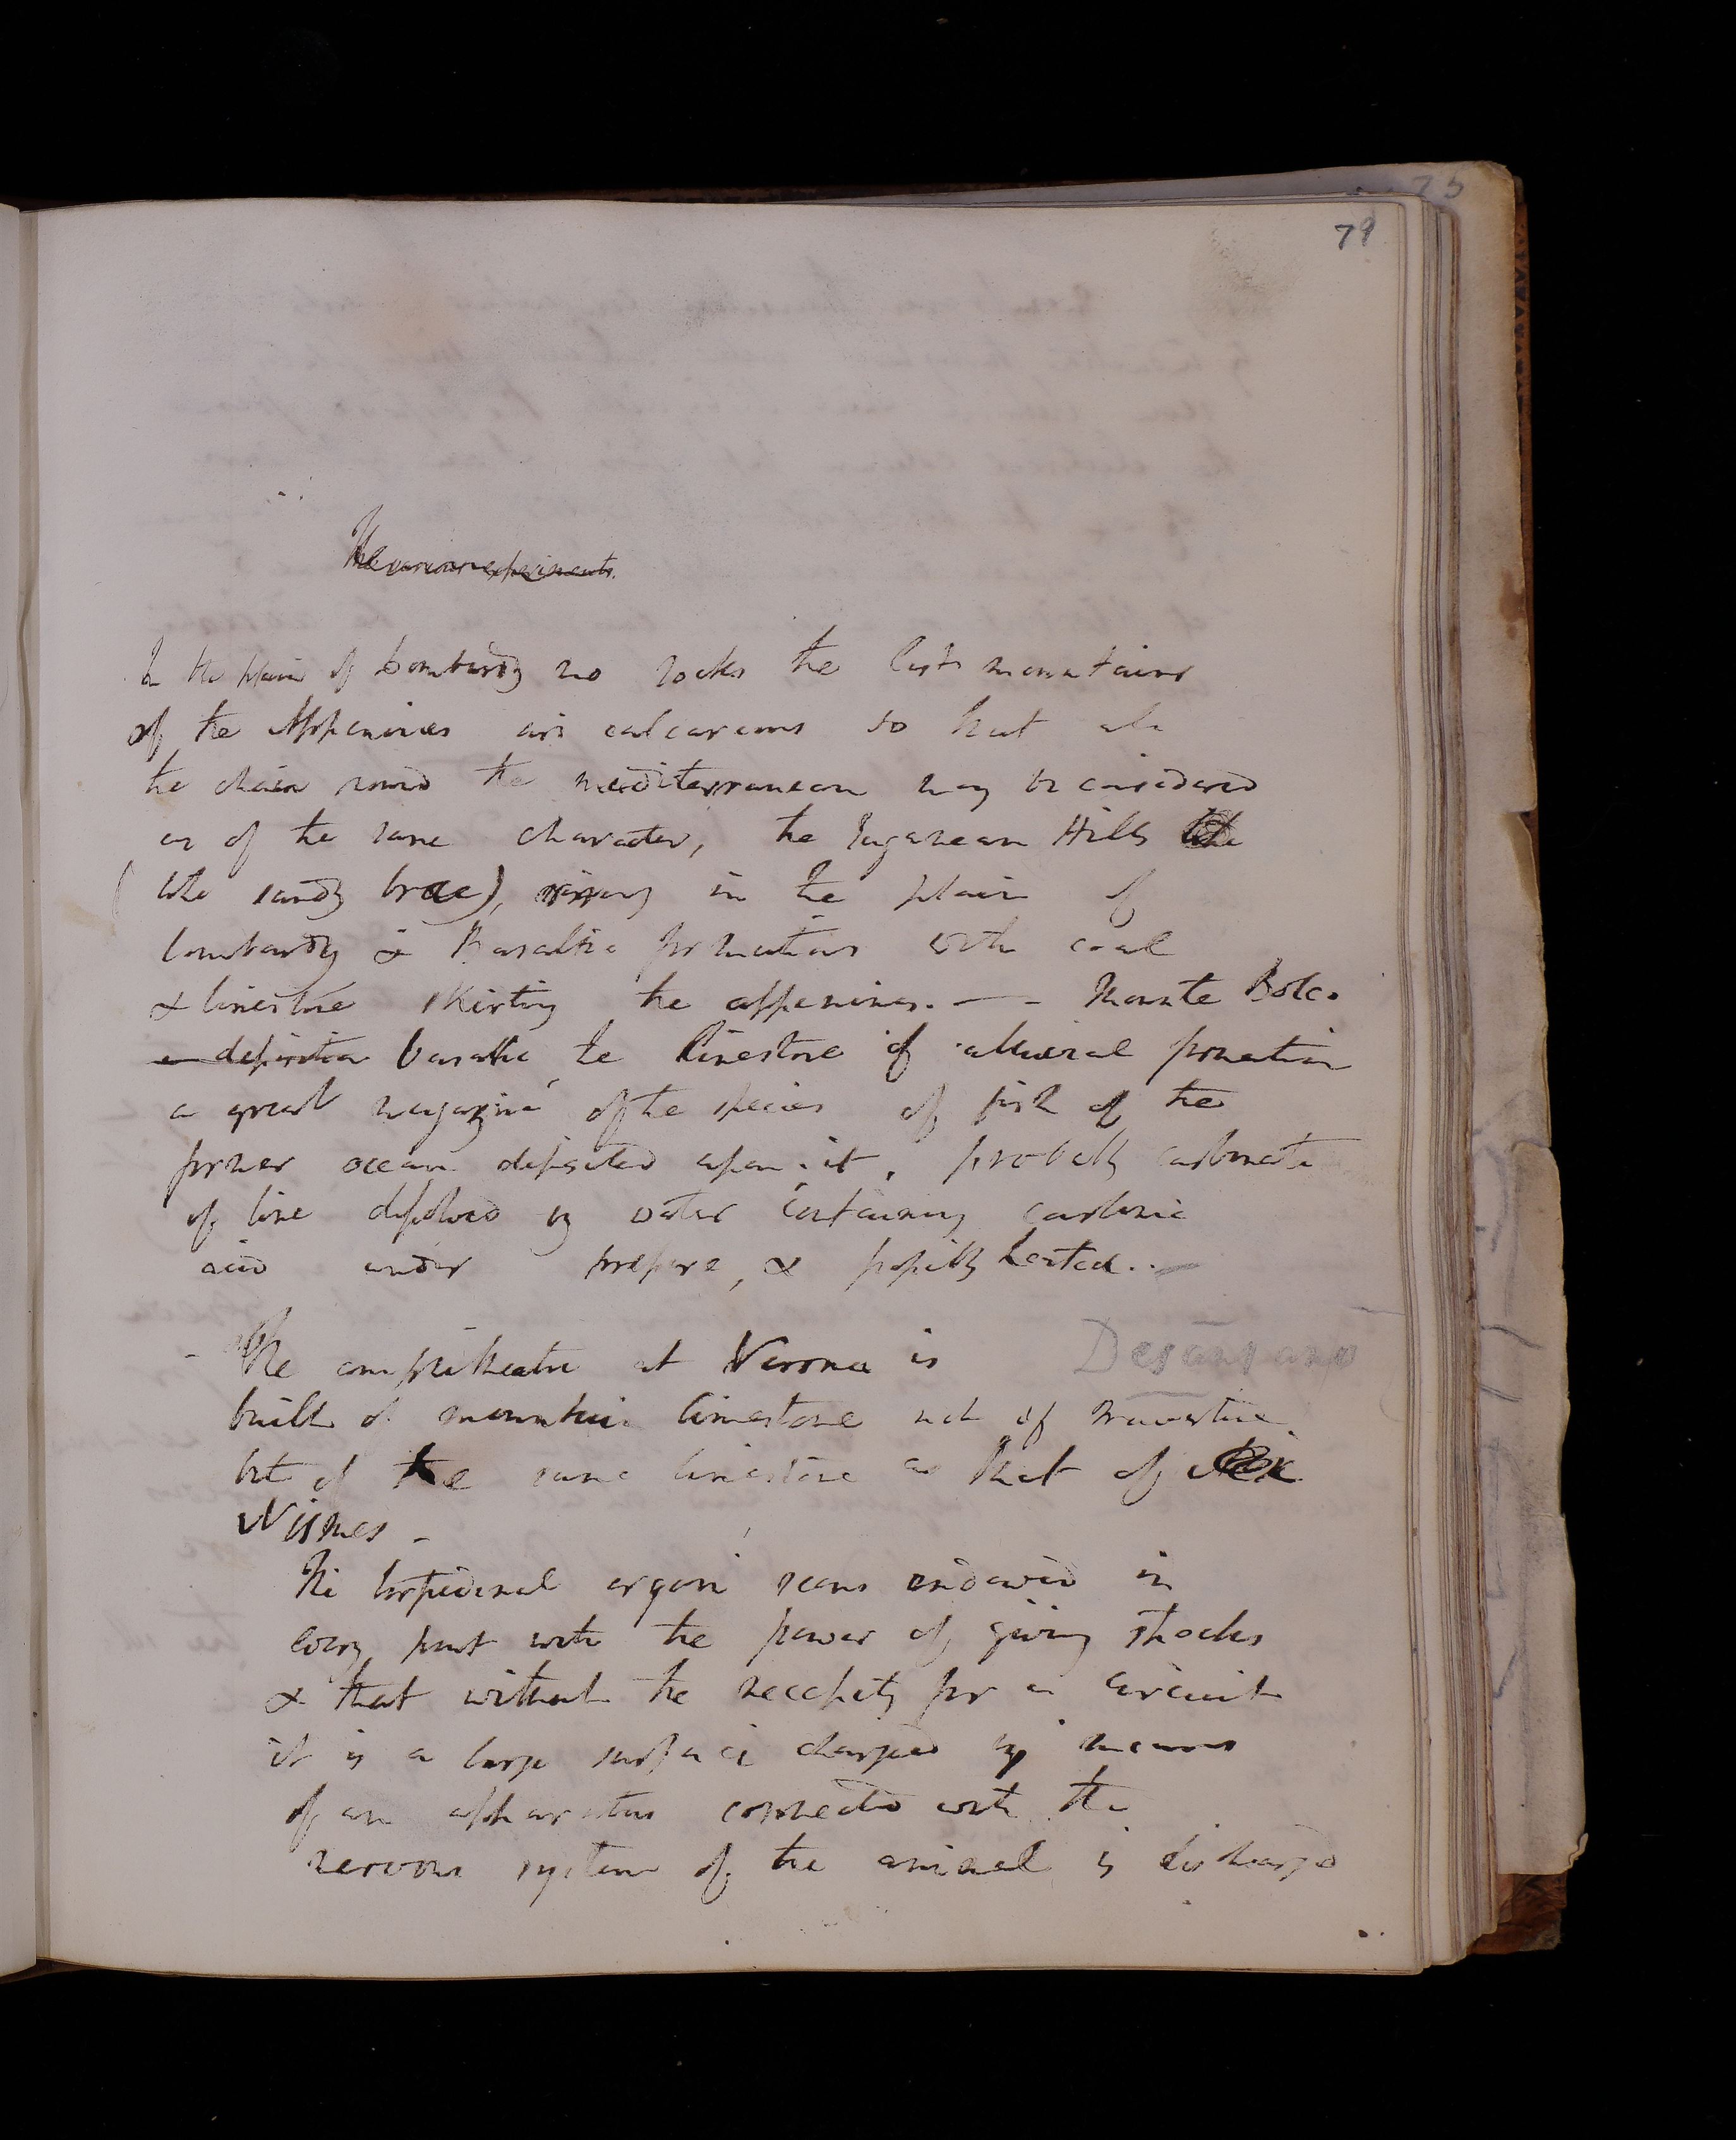 75
79
The various experiments.
In the plain of Lombardy no rocks the last mountains
of the Appenines are calcareous so that all
the chain round the mediterranean may be considered
as of the same character, the Euganean Hills
(like sandy brae), rising in the plain of
Lombardy & Basaltic formations with coal
& limestone skirting the appenines. — Monte Bolca
a deposition basaltic the limestone of alluvial formation
a great magazine of the species of fish of the
former ocean deposited upon it, probably carbonate
of lime dissolved by water containing carbonic
acid under pressure, & possibly heated. —
Desansano
The amphitheatre at Verona is
built of mountain limestone not of travertine
but of the same limestone as that of
Nismes -
The torpedinal organ seems endowed in
every part with the power of giving shocks
& that without the necessity for a circuit
it is a large surface charged by means
of an apparatus connected with the
nervous system of the animal is discharged